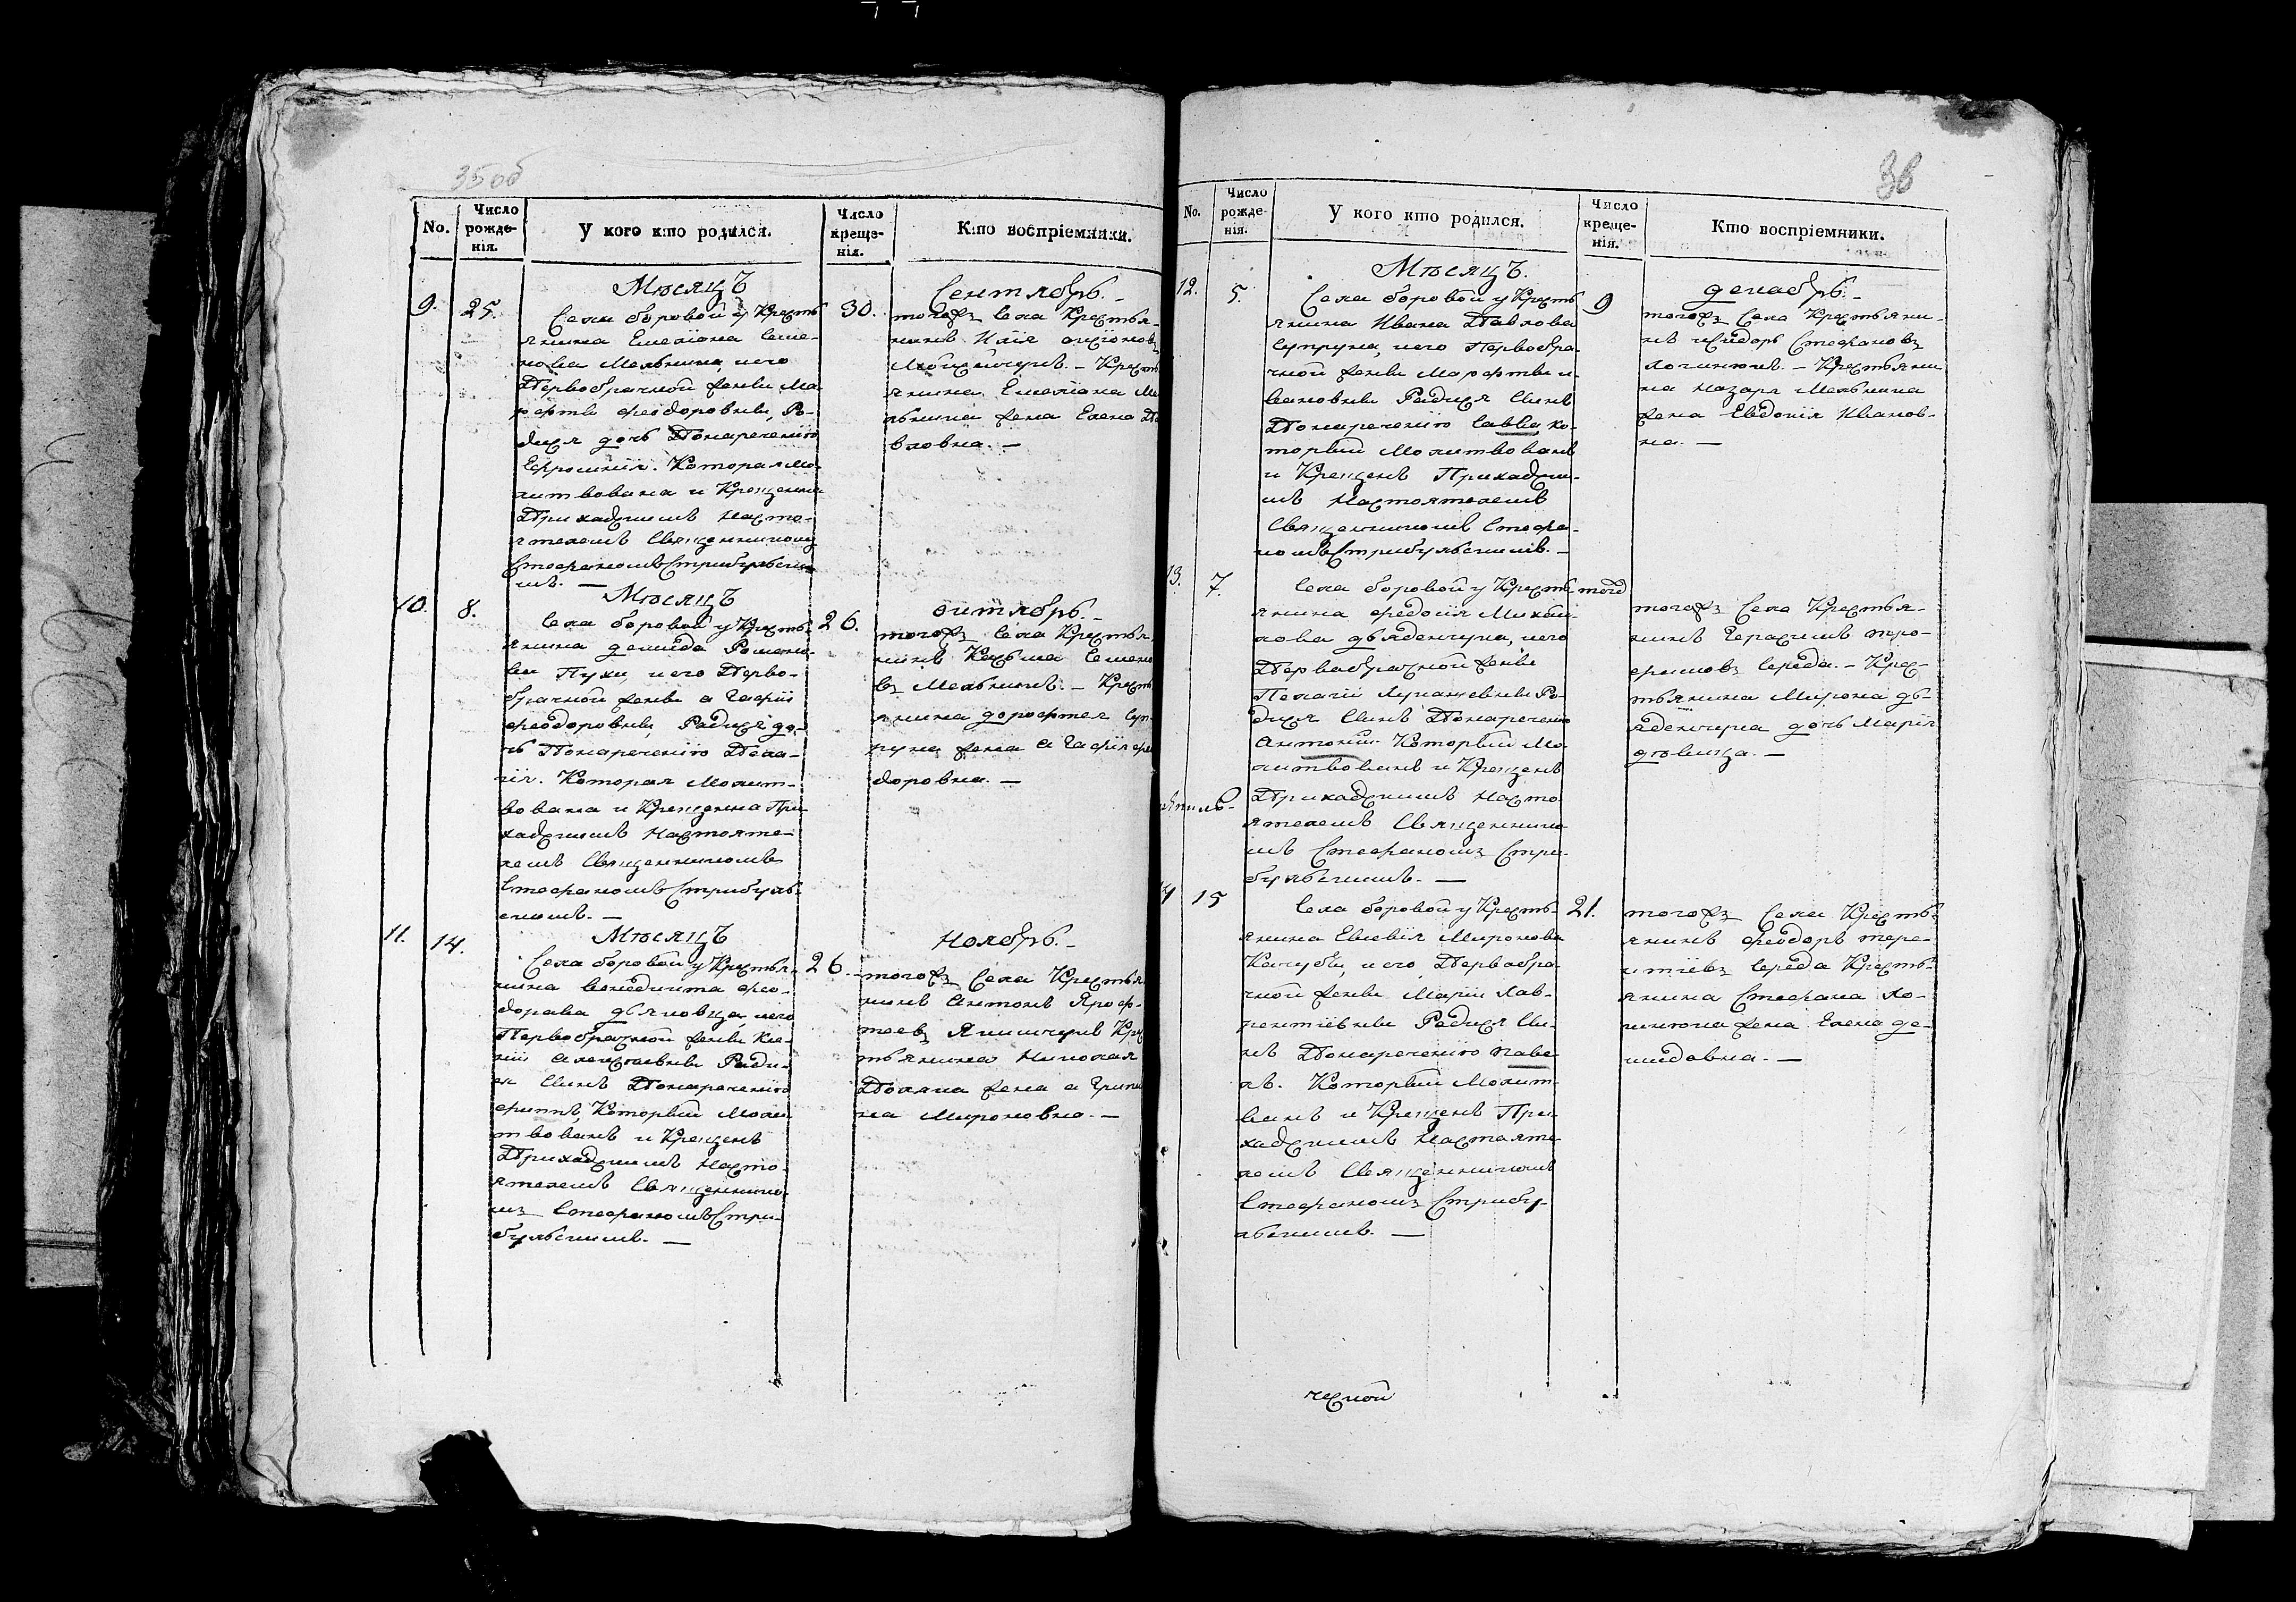 35 об
No.
Число рожде-нія.
У кого кто родился.
Число креще-нія.
Кто воспріемники.
Мѣсяцъ
Сентябрь. -
9.
25.
Села боровой у Кресть
янина Емеліяна Семе-
нова Мельника, и его
Первобрачной жены Ма-
рфты феодоровны, Ро-
дися дочь Понареченію
Ефросинія. Которая мо-
литвована и Крещенна
Приходскимъ Насто-
ятелемъ Священникомъ
Стефаномъ Стрибульски
мъ. —
30.
тогожъ Села Крестья-
нинъ Илія
Крестья
янина Емеліяна Ме
льника жена Елена Па
вловна. —
Мѣсяцъ
октябрь. -
10.
8.
Села боровой у Кресть-
янина демида Романо-
ва Пухи, и его Перво-
брачной жены агафіи
феодоровны, Родися до-
чь Понареченію Пела-
гія. Которая Молит-
вована и Крещенна При
ходскимъ Настояте-
лемъ Священникомъ
Стефаномъ Стрибуль-
скимъ. —
26.
тогожъ Села Крестья
нинъ Козьма Семено
въ Мельникъ. - Кресть
янина дорофтея Суп-
руна жена агафія фео
доровна. —
Мѣсяцъ
Ноябрь. -
11.
14.
Села боровой у Крестья-
нина венедикта фео-
дорова дьяковца, и его
Первобрачной жены Ксе-
ніи алексіевны Роди-
ся Сынъ Понареченію
филипъ, Который Моли-
твованъ и Крещенъ
Приходскимъ Насто-
ятелемъ Священнико-
мъ Стефаномъ Стри-
бульскимъ. —
26.
тогожъ Села Крестья
нинъ антонъ Яроф-
теевъ Якимчукъ Крес
тьянина Николая
Поляка жена агрипи
на Мироновна. —
36
No.
Число рожде-нія.
У кого кто родился.
Число креще-нія.
Кто воспріемники.
Мѣсяцъ.
декабрь. -
12.
5.
Села боровой у Кресть
янина Ивана Павлова
Супруна, и его Первобра-
чной жены Марфты и-
вановны Родися Сынъ
Понареченію Савва ко-
торый Молитвованъ
и Крещенъ Приходски-
мъ Настоятелемъ
Священникомъ Стефа-
номъ Стрибульскимъ. —
9
тогожъ Села Крестьяни-
нъ исидоръ Стефановъ
Логинюкъ. - Крестьяни
на назара Мельника
жена Евдокія Иванов-
на. —
13.
7.
Села боровой у Кресть-
янина федосія Михай-
лова дьяденчука, и его
Первобрачной жены
Пелагіи Лукашевны Ро-
дися Сынъ Понареченію
антоній. Который Мо-
литвованъ и Крещенъ
Приходскимъ Насто-
ятелемъ Священнико-
мъ Стефаномъ Стри-
бульскимъ. —
того
тогожъ Села Крестья-
нинъ герасимъ тро-
фимовъ Середа. - Крес-
тьянина Мирона дь-
яденчука дочь Марія
дѣвица. —
14
15
Села боровой у Кресть-
янина Евсевія Миронова
Качубы, и его Первобра-
чной жены Маріи Лав-
рентіевны Родися Сы-
нъ Понареченію паве
лъ. Который Молит-
ванъ и Крещенъ При-
ходскимъ Настояте
лемъ Священникомъ
Стефаномъ Стрибу-
льскимъ. —
21.
тогожъ Села Кресть-
янинъ феодоръ тере-
нтіевъ Середа Кресть-
янина Стефана Ло-
гинюка жена Елена де-
мидовна. —